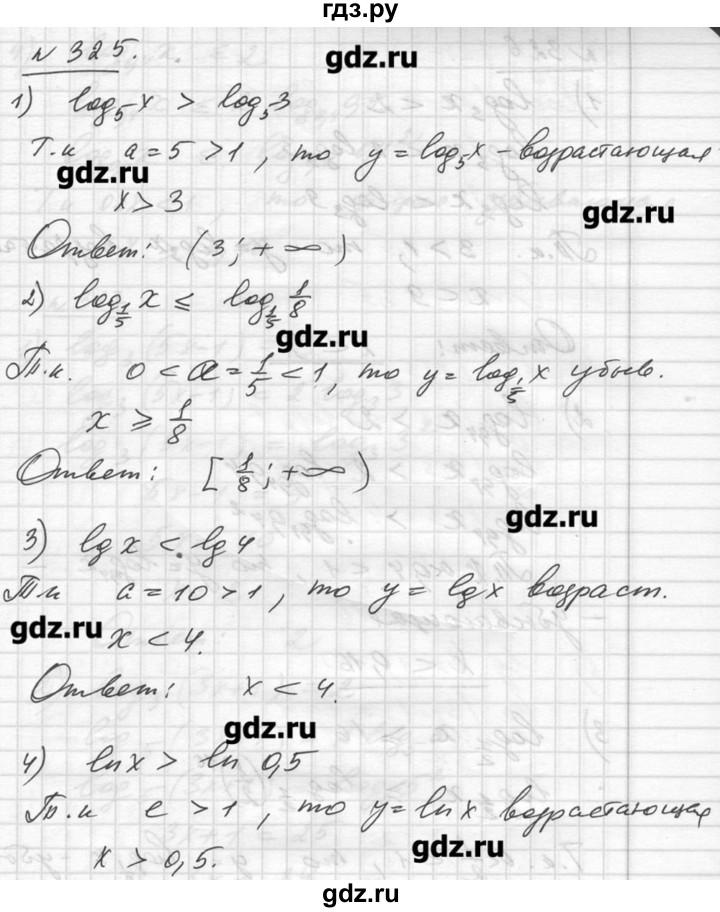 гдз.ру
gdz.ru
N 325.
1) log₅x > log₅3
Т.к a = 5 > 1, то y = log₅x – возрастающая
gdz.ru
x > 3
gdz.ru
Ответ: (3; +∞)
2) log_{1/5} x ≤ log_{1/5} 1/8
gdz.ru
Т.к. 0 < a = 1/5 < 1, то y = log_{1/5} x убыв.
x ≥ 1/8
Ответ: [1/8; +∞)
gdz.ru
3) lg x < lg 4
Т.к a = 10 > 1, то y = lg x возраст.
gdz.ru
x < 4.
Ответ: x < 4.
gdz.ru
4) ln x > ln 0,5
Т.к e > 1, то y = ln x возрастающая
gdz.ru
x > 0,5.
gdz.ru